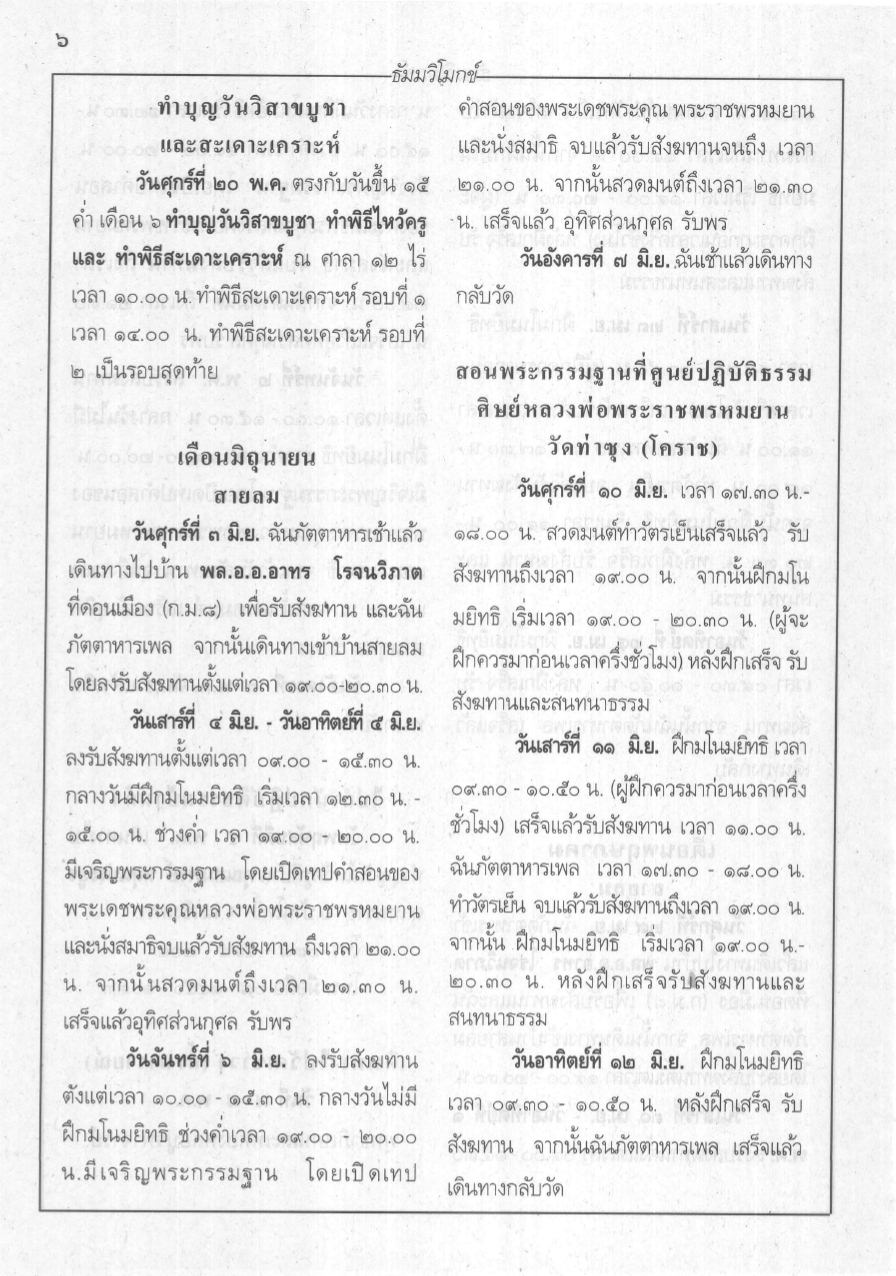 ๖
ธัมมวิโมกข์
ทำบุญวันวิสาขบูชา
และสะเดาะเคราะห์
วันศุกร์ที่ ๒๐ พ.ค. ตรงกับวันขึ้น ๑๕
ค่ำ เดือน ๖ ทำบุญวันวิสาขบูชา ทำพิธีไหว้ครู
และ ทำพิธีสะเดาะเคราะห์ ณ ศาลา ๑๒ ไร่
เวลา ๑๐.๐๐ น. ทำพิธีสะเดาะเคราะห์ รอบที่ ๑
เวลา ๑๔.๐๐ น. ทำพิธีสะเดาะเคราะห์ รอบที่
๒ เป็นรอบสุดท้าย
เดือนมิถุนายน
สายลม
วันศุกร์ที่ ๓ มิ.ย. ฉันภัตตาหารเช้าแล้ว
เดินทางไปบ้าน พล.อ.อ.อาทร โรจนวิภาต
ที่ดอนเมือง (ก.ม.๘) เพื่อรับสังฆทาน และฉัน
ภัตตาหารเพล จากนั้นเดินทางเข้าบ้านสายลม
โดยลงรับสังฆทานตั้งแต่เวลา ๑๙.๐๐-๒๐.๓๐ น.
วันเสาร์ที่ ๔ มิ.ย. - วันอาทิตย์ที่ ๕ มิ.ย.
ลงรับสังฆทานตั้งแต่เวลา ๐๙.๐๐ - ๑๕.๓๐ น.
กลางวันมีฝึกมโนมยิทธิ เริ่มเวลา ๑๒.๓๐ น. -
๑๕.๐๐ น. ช่วงค่ำ เวลา ๑๙.๐๐ - ๒๐.๐๐ น.
มีเจริญพระกรรมฐาน โดยเปิดเทปคำสอนของ
พระเดชพระคุณหลวงพ่อพระราชพรหมยาน
และนั่งสมาธิจบแล้วรับสังฆทาน ถึงเวลา ๒๑.๐๐
น. จากนั้นสวดมนต์ถึงเวลา ๒๑.๓๐ น.
เสร็จแล้วอุทิศส่วนกุศล รับพร
วันจันทร์ที่ ๖ มิ.ย. ลงรับสังฆทาน
ตังแต่เวลา ๑๐.๐๐ - ๑๕.๓๐ น. กลางวันไม่มี
ฝึกมโนมยิทธิ ช่วงค่ำเวลา ๑๙.๐๐ - ๒๐.๐๐
น.มีเจริญพระกรรมฐาน โดยเปิดเทป
คำสอนของพระเดชพระคุณ พระราชพรหมยาน
และนั่งสมาธิ จบแล้วรับสังฆทานจนถึง เวลา
๒๑.๐๐ น. จากนั้นสวดมนต์ถึงเวลา ๒๑.๓๐
น. เสร็จแล้ว อุทิศส่วนกุศล รับพร
วันอังคารที่ ๗ มิ.ย. ฉันเช้าแล้วเดินทาง
กลับวัด
สอนพระกรรมฐานที่ศูนย์ปฏิบัติธรรม
ศิษย์หลวงพ่อพระราชพรหมยาน
วัดท่าซุง (โคราช)
วันศุกร์ที่ ๑๐ มิ.ย. เวลา ๑๗.๓๐ น.-
๑๘.๐๐ น. สวดมนต์ทำวัตรเย็นเสร็จแล้ว รับ
สังฆทานถึงเวลา ๑๙.๐๐ น. จากนั้นฝึกมโน
มยิทธิ เริ่มเวลา ๑๙.๐๐ - ๒๐.๓๐ น. (ผู้จะ
ฝึกควรมาก่อนเวลาครึ่งชั่วโมง) หลังฝึกเสร็จ รับ
สังฆทานและสนทนาธรรม
วันเสาร์ที่ ๑๑ มิ.ย. ฝึกมโนมยิทธิ เวลา
๐๙.๓๐ - ๑๐.๕๐ น. (ผู้ฝึกควรมาก่อนเวลาครึ่ง
ชั่วโมง) เสร็จแล้วรับสังฆทาน เวลา ๑๑.๐๐ น.
ฉันภัตตาหารเพล เวลา ๑๗.๓๐ - ๑๘.๐๐ น.
ทำวัตรเย็น จบแล้วรับสังฆทานถึงเวลา ๑๙.๐๐ น.
จากนั้น ฝึกมโนมยิทธิ เริ่มเวลา ๑๙.๐๐ น.-
๒๐.๓๐ น. หลังฝึกเสร็จรับสังฆทานและ
สนทนาธรรม
วันอาทิตย์ที่ ๑๒ มิ.ย. ฝึกมโนมยิทธิ
เวลา ๐๙.๓๐ - ๑๐.๕๐ น. หลังฝึกเสร็จ รับ
สังฆทาน จากนั้นฉันภัตตาหารเพล เสร็จแล้ว
เดินทางกลับวัด